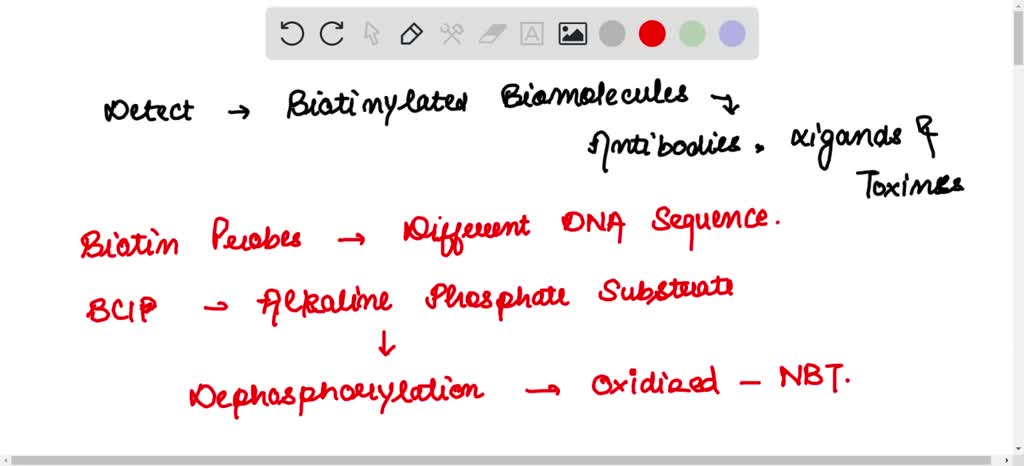 Detect → Biotinylated Biomolecules →
Antibodies, Ligands &
Toxines
Biotin Probes → Different DNA Sequence.
BCIP → Alkaline Phosphate Substrate
↓
Dephosphorylation → Oxidized - NBT.